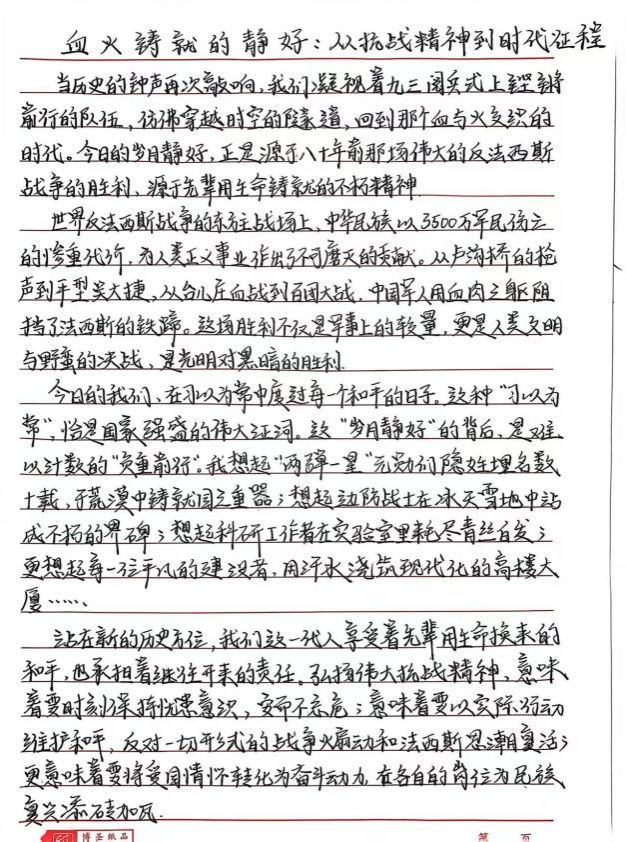 血火铸就的静好：从抗战精神到时代征程
当历史的钟声再次敲响，我们凝视着九三阅兵式上铿锵
前行的队伍，仿佛穿越时空的隧道，回到那个血与火交织的
时代。今日的岁月静好，正是源于八十年前那场伟大的反法西斯
战争的胜利，源于先辈用生命铸就的不朽精神.
世界反法西斯战争的东方主战场上，中华民族以3500万军民伤亡
的惨重代价，为人类正义事业作出了不可磨灭的贡献。从卢沟桥的枪
声到平型关大捷，从台儿庄血战到百团大战，中国军人用血肉之躯阻
挡了法西斯的铁蹄。这场胜利不仅是军事上的较量，更是人类文明
与野蛮的决战，是光明对黑暗的胜利.
今日的我们，在习以为常中度过每一个和平的日子。这种“习以为
常”，恰是国家强盛的伟大证词。这“岁月静好”的背后，是难
以计数的“负重前行”。我想起“两弹一星”元勋们隐姓埋名数
十载，于荒漠中铸就国之重器；想起边防战士在冰天雪地中站
成不朽的界碑；想起科研工作者在实验室里耗尽青丝白发；
更想起每一位平凡的建设者，用汗水浇筑现代化的高楼大
厦……
站在新的历史方位，我们这一代人享受着先辈用生命换来的
和平，也承担着继往开来的责任。弘扬伟大抗战精神，意味
着要时刻保持忧患意识，安而不忘危；意味着要以实际行动
维护和平，反对一切形式的战争火煽动和法西斯思潮复活；
更意味着要将爱国情怀转化为奋斗动力，在各自的岗位为民族
复兴添砖加瓦.
博圣纸品
第 页